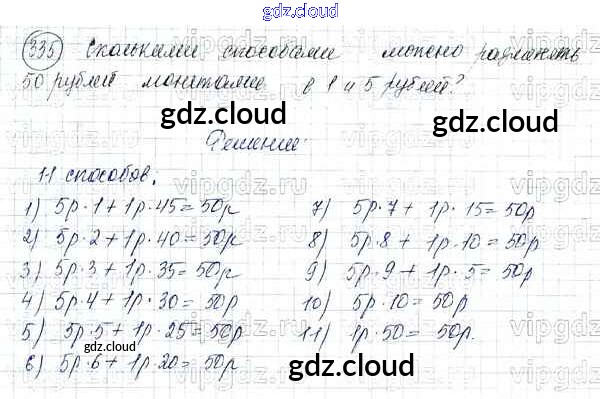 gdz.cloud
335 Сколькими способами можно разменять
50 рублей монетами в 1 и 5 рублей?
gdz.cloud gdz.cloud
Решение:
11 способов:
1) 5р·1 + 1р·45 = 50р
2) 5р·2 + 1р·40 = 50р
3) 5р·3 + 1р·35 = 50р
4) 5р·4 + 1р·30 = 50р
5) 5р·5 + 1р·25 = 50р
6) 5р·6 + 1р·20 = 50р
7) 5р·7 + 1р·15 = 50р
8) 5р·8 + 1р·10 = 50р
9) 5р·9 + 1р·5 = 50р
10) 5р·10 = 50р
11) 1р·50 = 50р.
gdz.cloud gdz.cloud